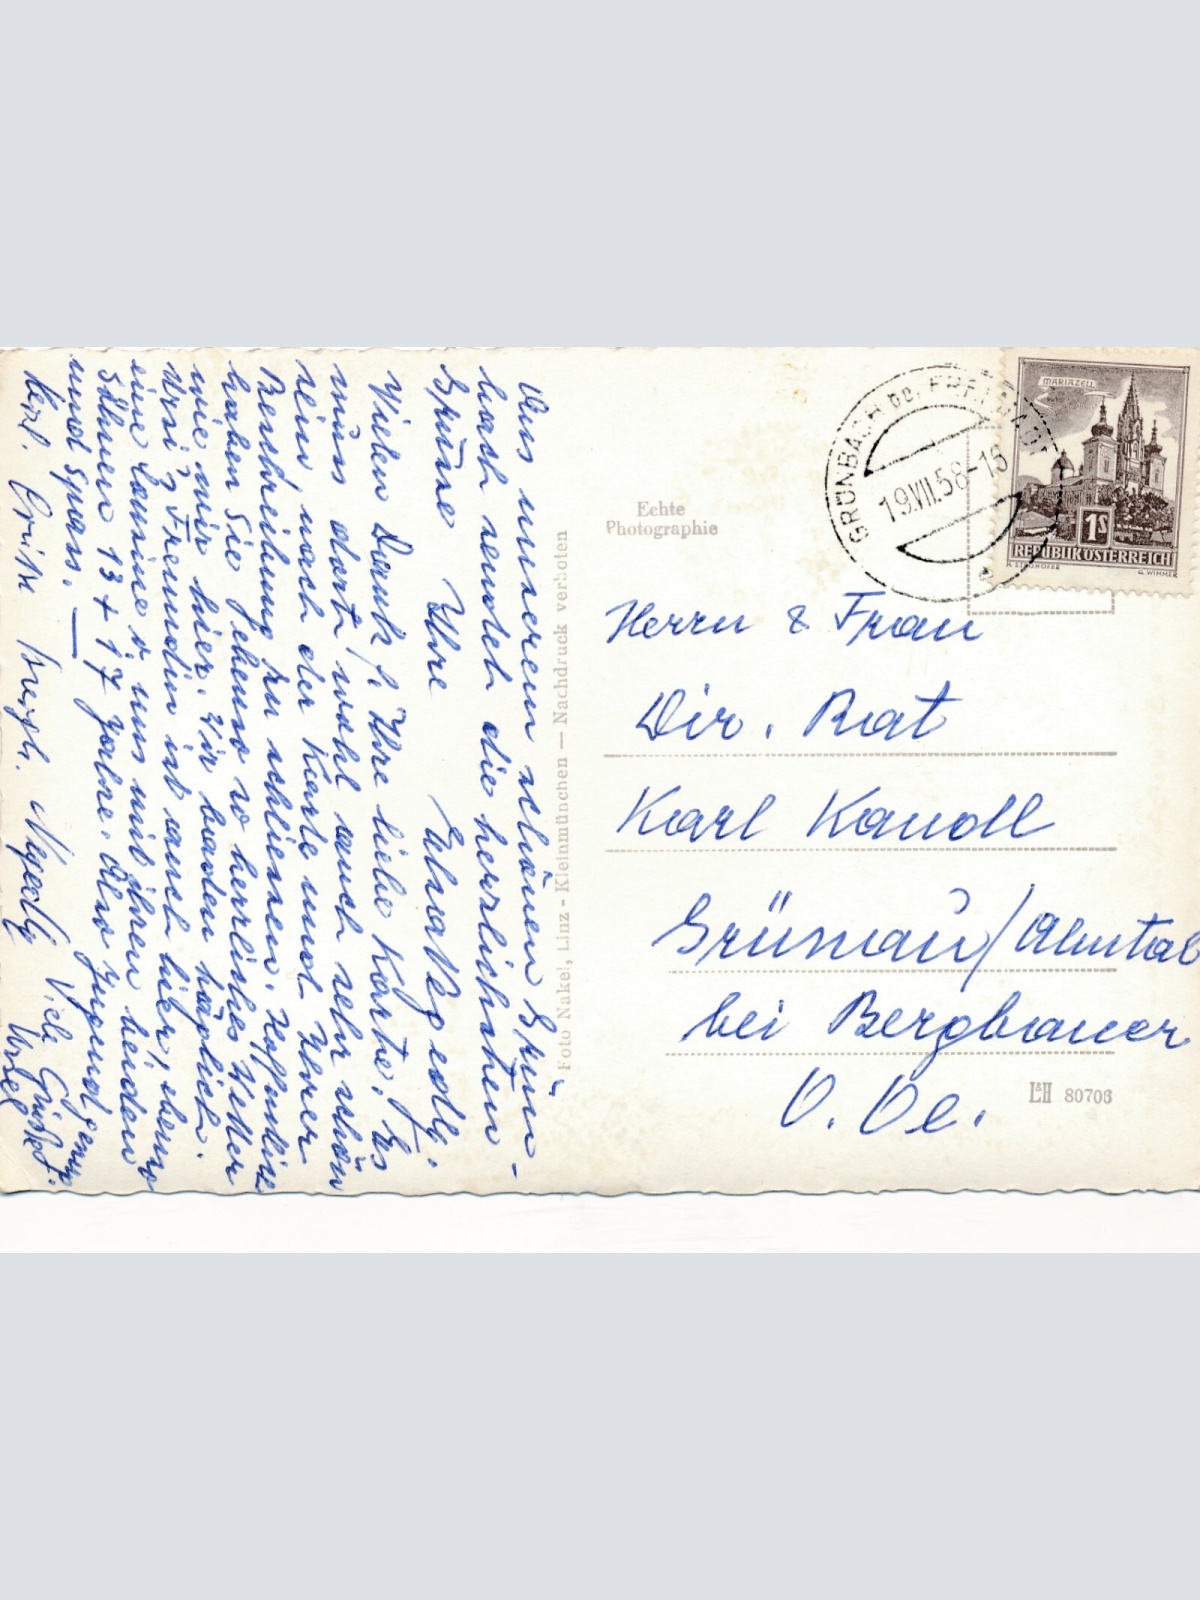 Aus unserem schönen Grün-
bach sendet die herzlichsten
Grüsse Ihre
Vielen Dank f. Ihre liebe Karte! Es
muss dort wohl auch sehr schön
sein, nach der Karte und Ihrer
Beschreibung zu schliessen. Hoffentlich
haben Sie ebenso so herrliches Wetter
wie wir hier. Wir baden täglich.
Freundin ist auch hier, ebenso
eine Cousine v. uns mit ihren beiden
Söhnen 13 + 17 Jahre. Also Jugend genug
und Spass. —
Viele Grüsse
Foto Nakel, Linz - Kleinmünchen — Nachdruck verboten
Echte
Photographie
GRÜNBACH BEI FREISTADT
19.VII.58-16
MARIAZELL
1S
REPUBLIK ÖSTERREICH
R. STROHOFER G. WIMMER
Herrn & Frau
Dir. Rat
Karl Kandl
Grünau/Almtal
bei Bergbauer
O. Oe.
L&H 80706